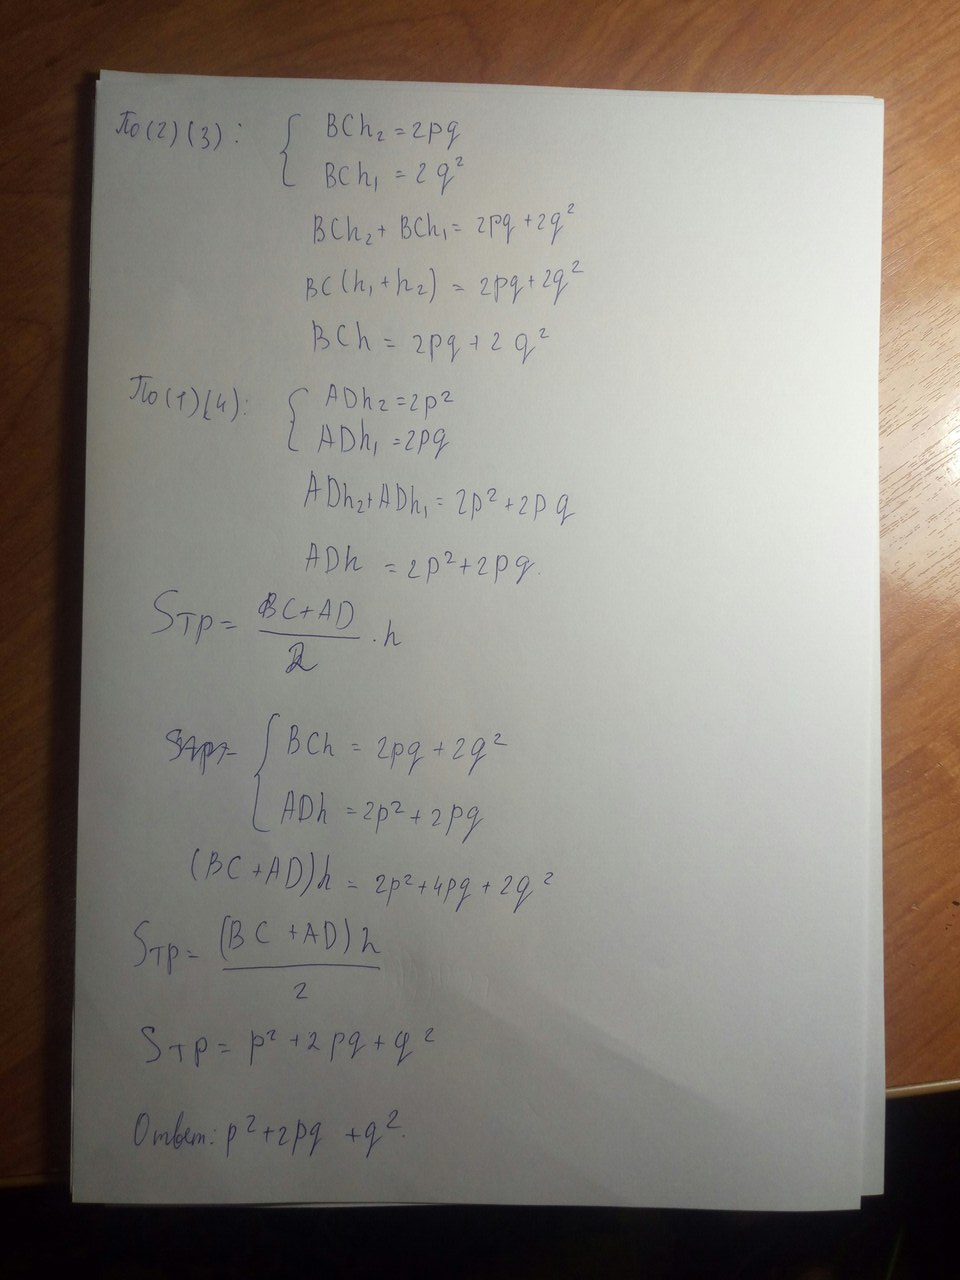 По (2) (3): { BCh₂ = 2pq
BCh₁ = 2q²
BCh₂ + BCh₁ = 2pq + 2q²
BC(h₁ + h₂) = 2pq + 2q²
BCh = 2pq + 2q²
По (1) (4): { ADh₂ = 2p²
ADh₁ = 2pq
ADh₂ + ADh₁ = 2p² + 2pq
ADh = 2p² + 2pq.
Sтр = (BC + AD)/2 · h
{ BCh = 2pq + 2q²
ADh = 2p² + 2pq
(BC + AD)h = 2p² + 4pq + 2q²
Sтр = (BC + AD)h/2
Sтр = p² + 2pq + q²
Ответ: p² + 2pq + q².